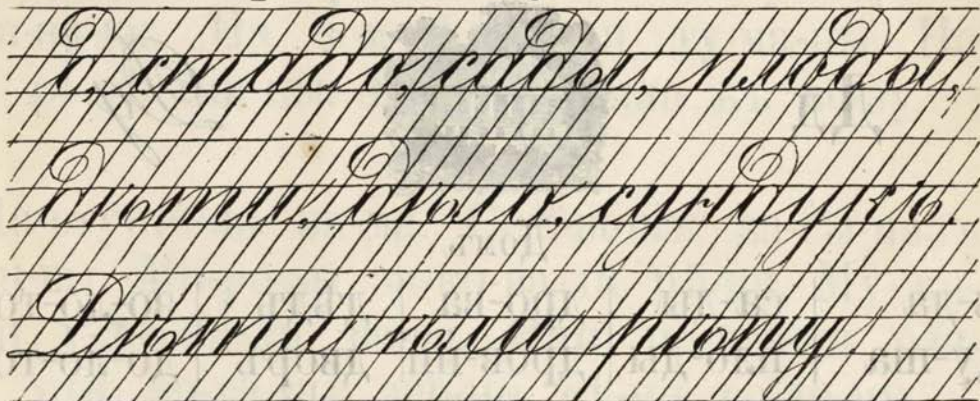 д, стадо, сады, плоды,
дѣти, дѣло, сундукъ.
Дѣти ѣли рѣпу.